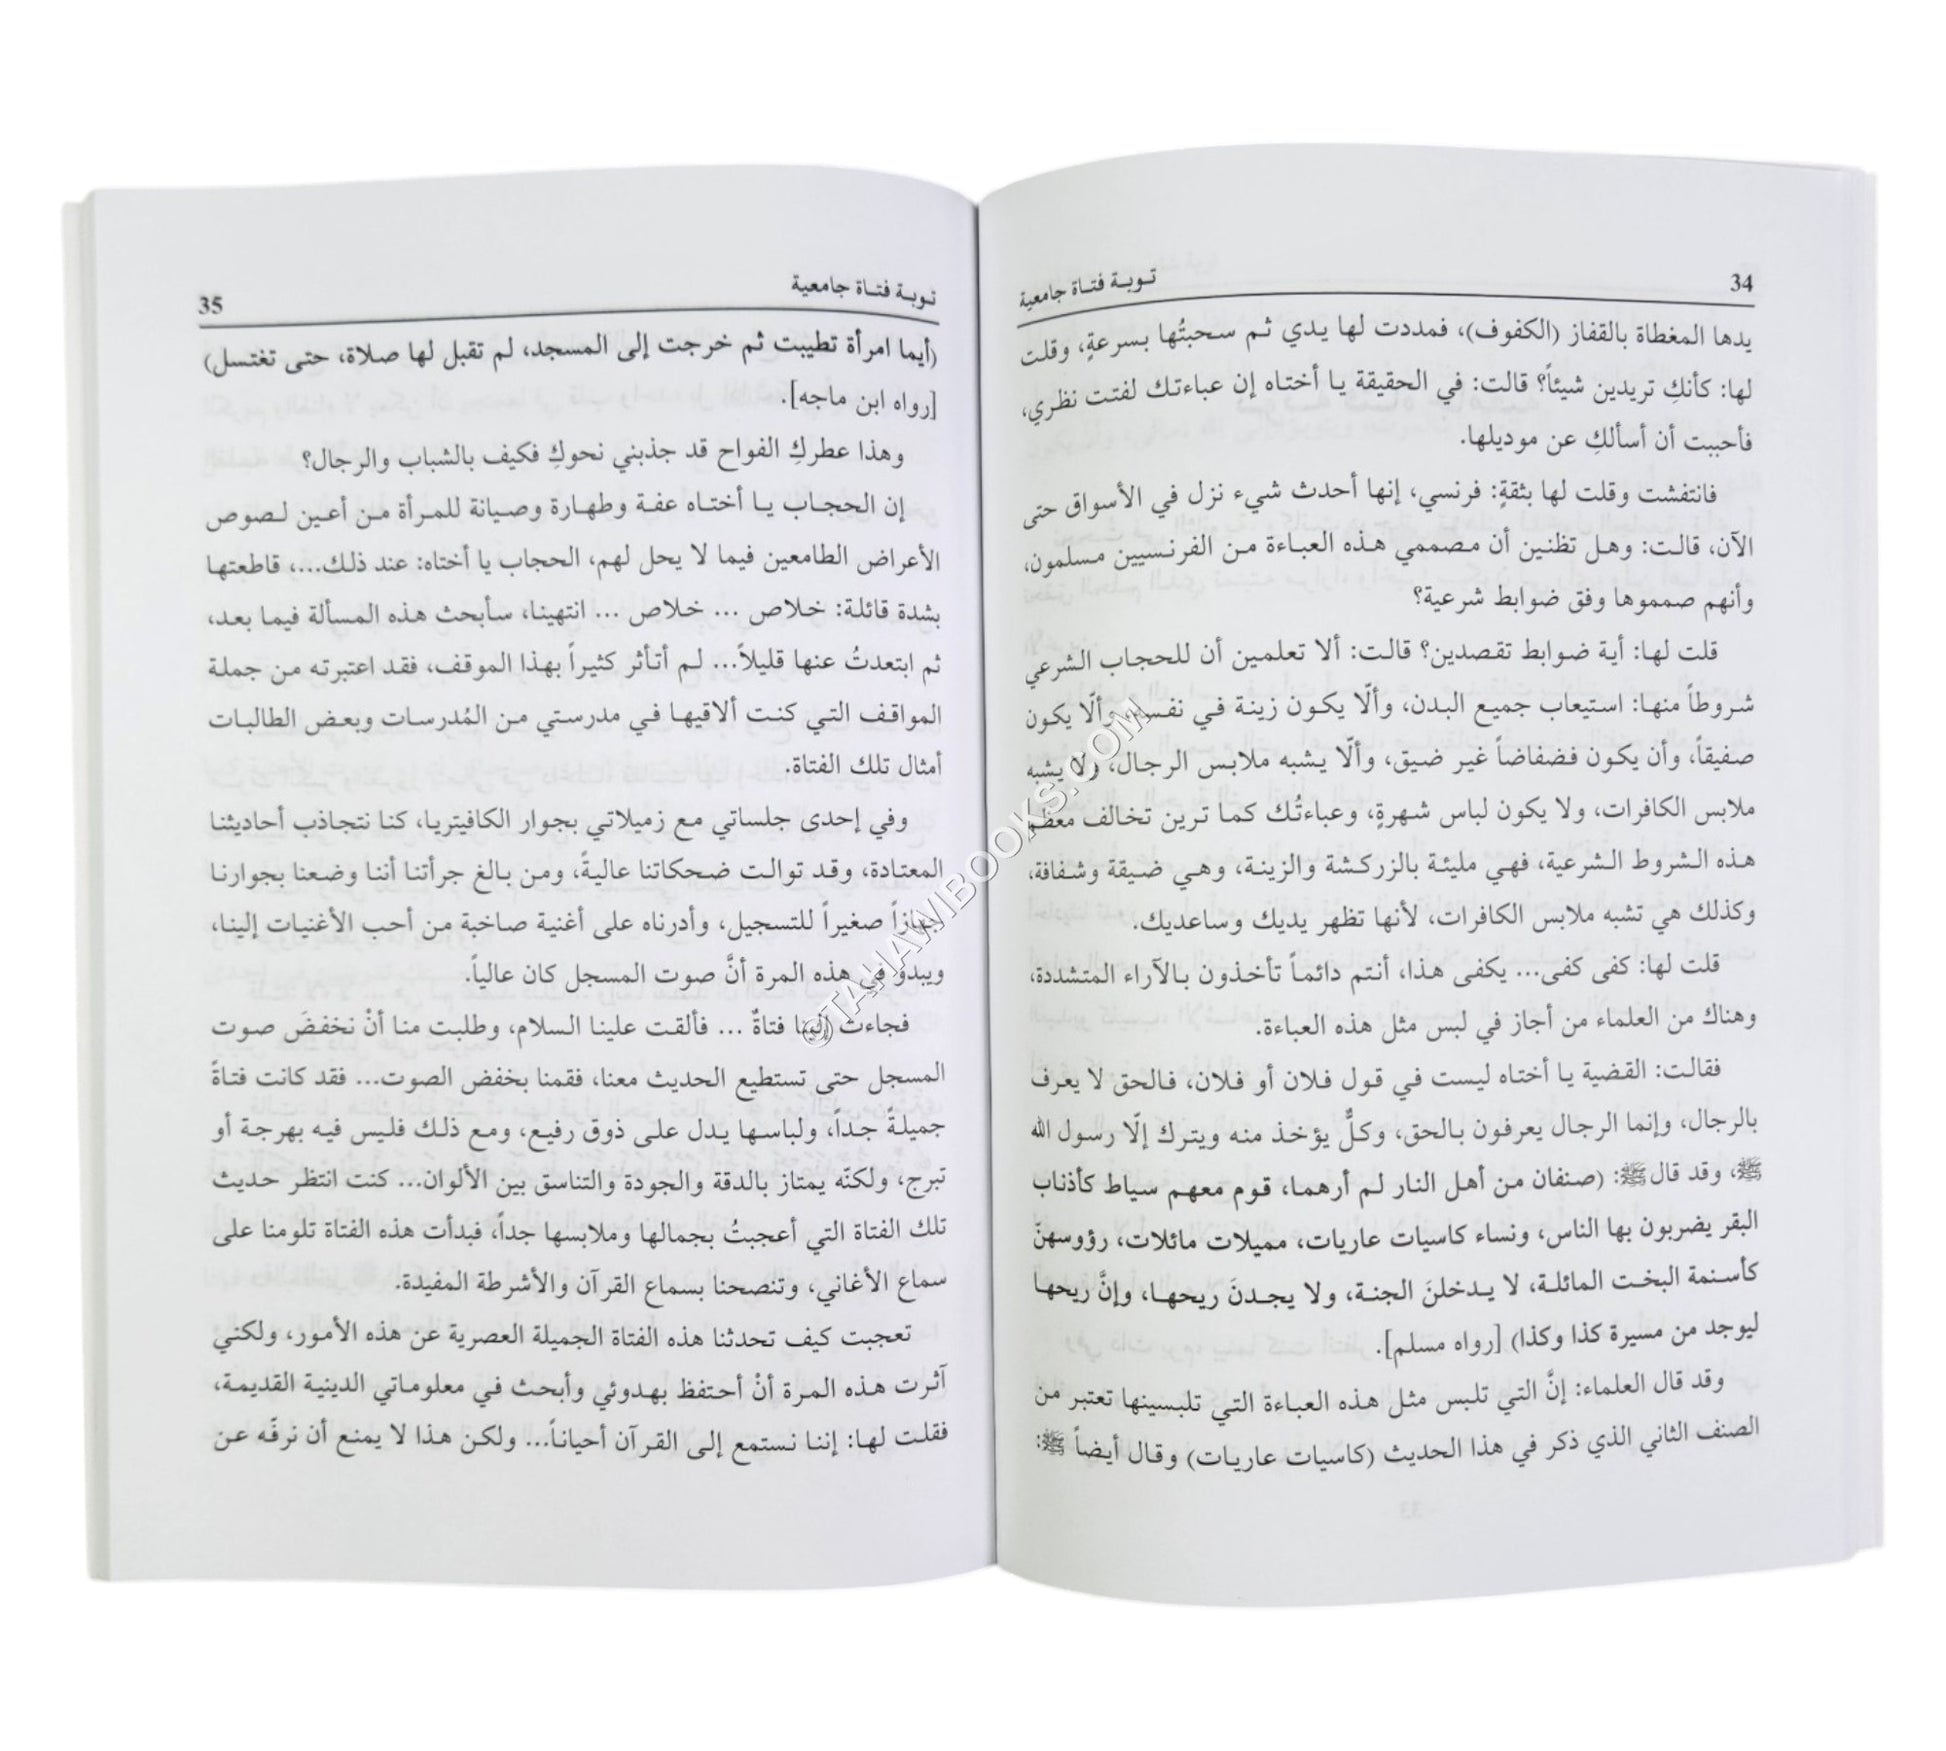 34
توبة فتاة جامعية
يدها المغطاة بالقفاز (الكفوف)، فمددت لها يدي ثم سحبتُها بسرعةٍ، وقلت
لها: كأنكِ تريدين شيئاً؟ قالت: في الحقيقة يا أختاه إن عباءتك لفتت نظري،
فأحببت أن أسألكِ عن موديلها.
فانتفشت وقلت لها بثقةٍ: فرنسي، إنها أحدث شيء نزل في الأسواق حتى
الآن، قالت: وهل تظنين أن مصممي هذه العباءة من الفرنسيين مسلمون،
وأنهم صمموها وفق ضوابط شرعية؟
قلت لها: أية ضوابط تقصدين؟ قالت: ألا تعلمين أن للحجاب الشرعي
شروطاً منها: استيعاب جميع البدن، وألّا يكون زينة في نفسه، وألّا يكون
صفيقاً، وأن يكون فضفاضاً غير ضيق، وألّا يشبه ملابس الرجال، ولا يشبه
ملابس الكافرات، ولا يكون لباس شهرةٍ، وعباءتُك كما ترين تخالف معظم
هذه الشروط الشرعية، فهي مليئة بالزركشة والزينة، وهي ضيقة وشفافة،
وكذلك هي تشبه ملابس الكافرات، لأنها تظهر يديك وساعديك.
قلت لها: كفى كفى... يكفى هذا، أنتم دائماً تأخذون بالآراء المتشددة،
وهناك من العلماء من أجاز في لبس مثل هذه العباءة.
فقالت: القضية يا أختاه ليست في قول فلان أو فلان، فالحق لا يعرف
بالرجال، وإنما الرجال يعرفون بالحق، وكلٌّ يؤخذ منه ويترك إلّا رسول الله
ﷺ، وقد قال ﷺ: (صنفان من أهل النار لم أرهما، قوم معهم سياط كأذناب
البقر يضربون بها الناس، ونساء كاسيات عاريات، مميلات مائلات، رؤوسهنّ
كأسنمة البخت المائلة، لا يدخلنَ الجنة، ولا يجدنَ ريحها، وإنَّ ريحها
ليوجد من مسيرة كذا وكذا) [رواه مسلم].
وقد قال العلماء: إنَّ التي تلبس مثل هذه العباءة التي تلبسينها تعتبر من
الصنف الثاني الذي ذكر في هذا الحديث (كاسيات عاريات) وقال أيضاً ﷺ:
توبة فتاة جامعية
35
(أيما امرأة تطيبت ثم خرجت إلى المسجد، لم تقبل لها صلاة، حتى تغتسل)
[رواه ابن ماجه].
وهذا عطركِ الفواح قد جذبني نحوكِ فكيف بالشباب والرجال؟
إن الحجاب يا أختاه عفة وطهارة وصيانة للمرأة من أعين لصوص
الأعراض الطامعين فيما لا يحل لهم، الحجاب يا أختاه: عند ذلك...، قاطعتها
بشدة قائلة: خلاص ... خلاص ... انتهينا، سأبحث هذه المسألة فيما بعد،
ثم ابتعدتُ عنها قليلاً... لم أتأثر كثيراً بهذا الموقف، فقد اعتبرته من جملة
المواقف التي كنت ألاقيها في مدرستي من المُدرسات وبعض الطالبات
أمثال تلك الفتاة.
وفي إحدى جلساتي مع زميلاتي بجوار الكافيتريا، كنا نتجاذب أحاديثنا
المعتادة، وقد توالت ضحكاتنا عاليةً، ومن بالغ جرأتنا أننا وضعنا بجوارنا
جهازاً صغيراً للتسجيل، وأدرناه على أغنية صاخبة من أحب الأغنيات إلينا،
ويبدو في هذه المرة أنَّ صوت المسجل كان عالياً.
فجاءت إلينا فتاةٌ ... فألقت علينا السلام، وطلبت منا أنْ نخفضَ صوت
المسجل حتى تستطيع الحديث معنا، فقمنا بخفض الصوت... فقد كانت فتاةً
جميلةً جداً، ولباسها يدل على ذوق رفيع، ومع ذلك فليس فيه بهرجة أو
تبرج، ولكنّه يمتاز بالدقة والجودة والتناسق بين الألوان... كنت انتظر حديث
تلك الفتاة التي أعجبتُ بجمالها وملابسها جداً، فبدأت هذه الفتاة تلومنا على
سماع الأغاني، وتنصحنا بسماع القرآن والأشرطة المفيدة.
تعجبت كيف تحدثنا هذه الفتاة الجميلة العصرية عن هذه الأمور، ولكني
آثرت هذه المرة أنْ أحتفظ بهدوئي وأبحث في معلوماتي الدينية القديمة،
فقلت لها: إننا نستمع إلى القرآن أحياناً... ولكن هذا لا يمنع أن نرفّه عن
©TAHAWIBOOKS.COM